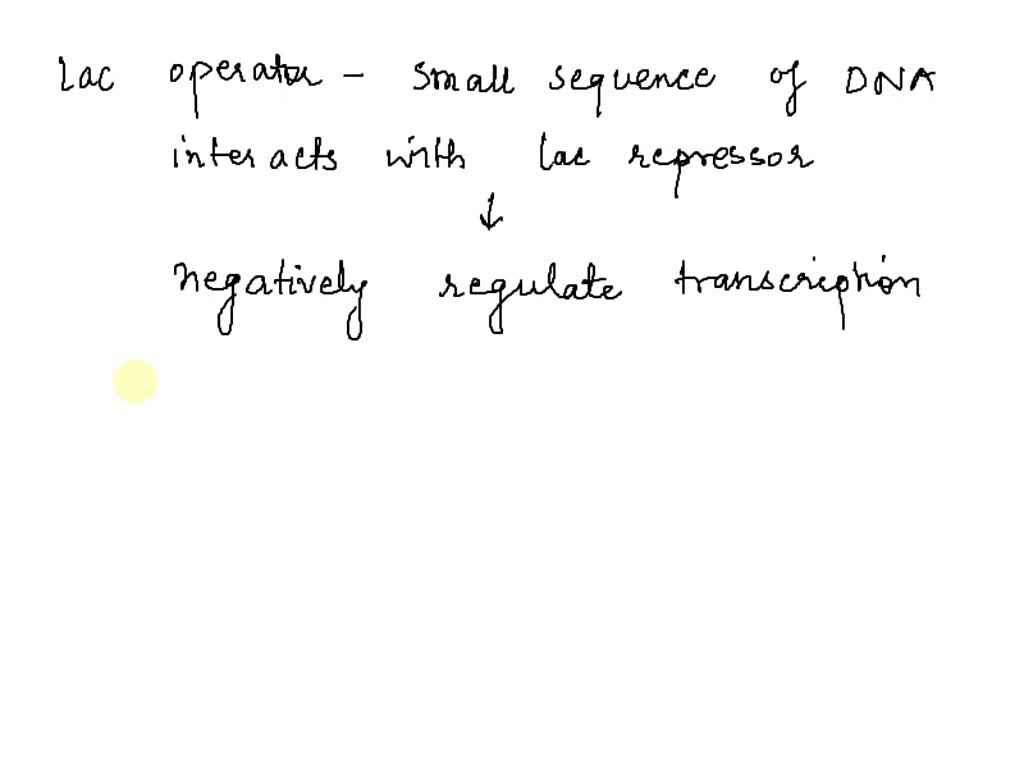 Lac operator - small sequence of DNA
interacts with lac repressor
↓
negatively regulate transcription